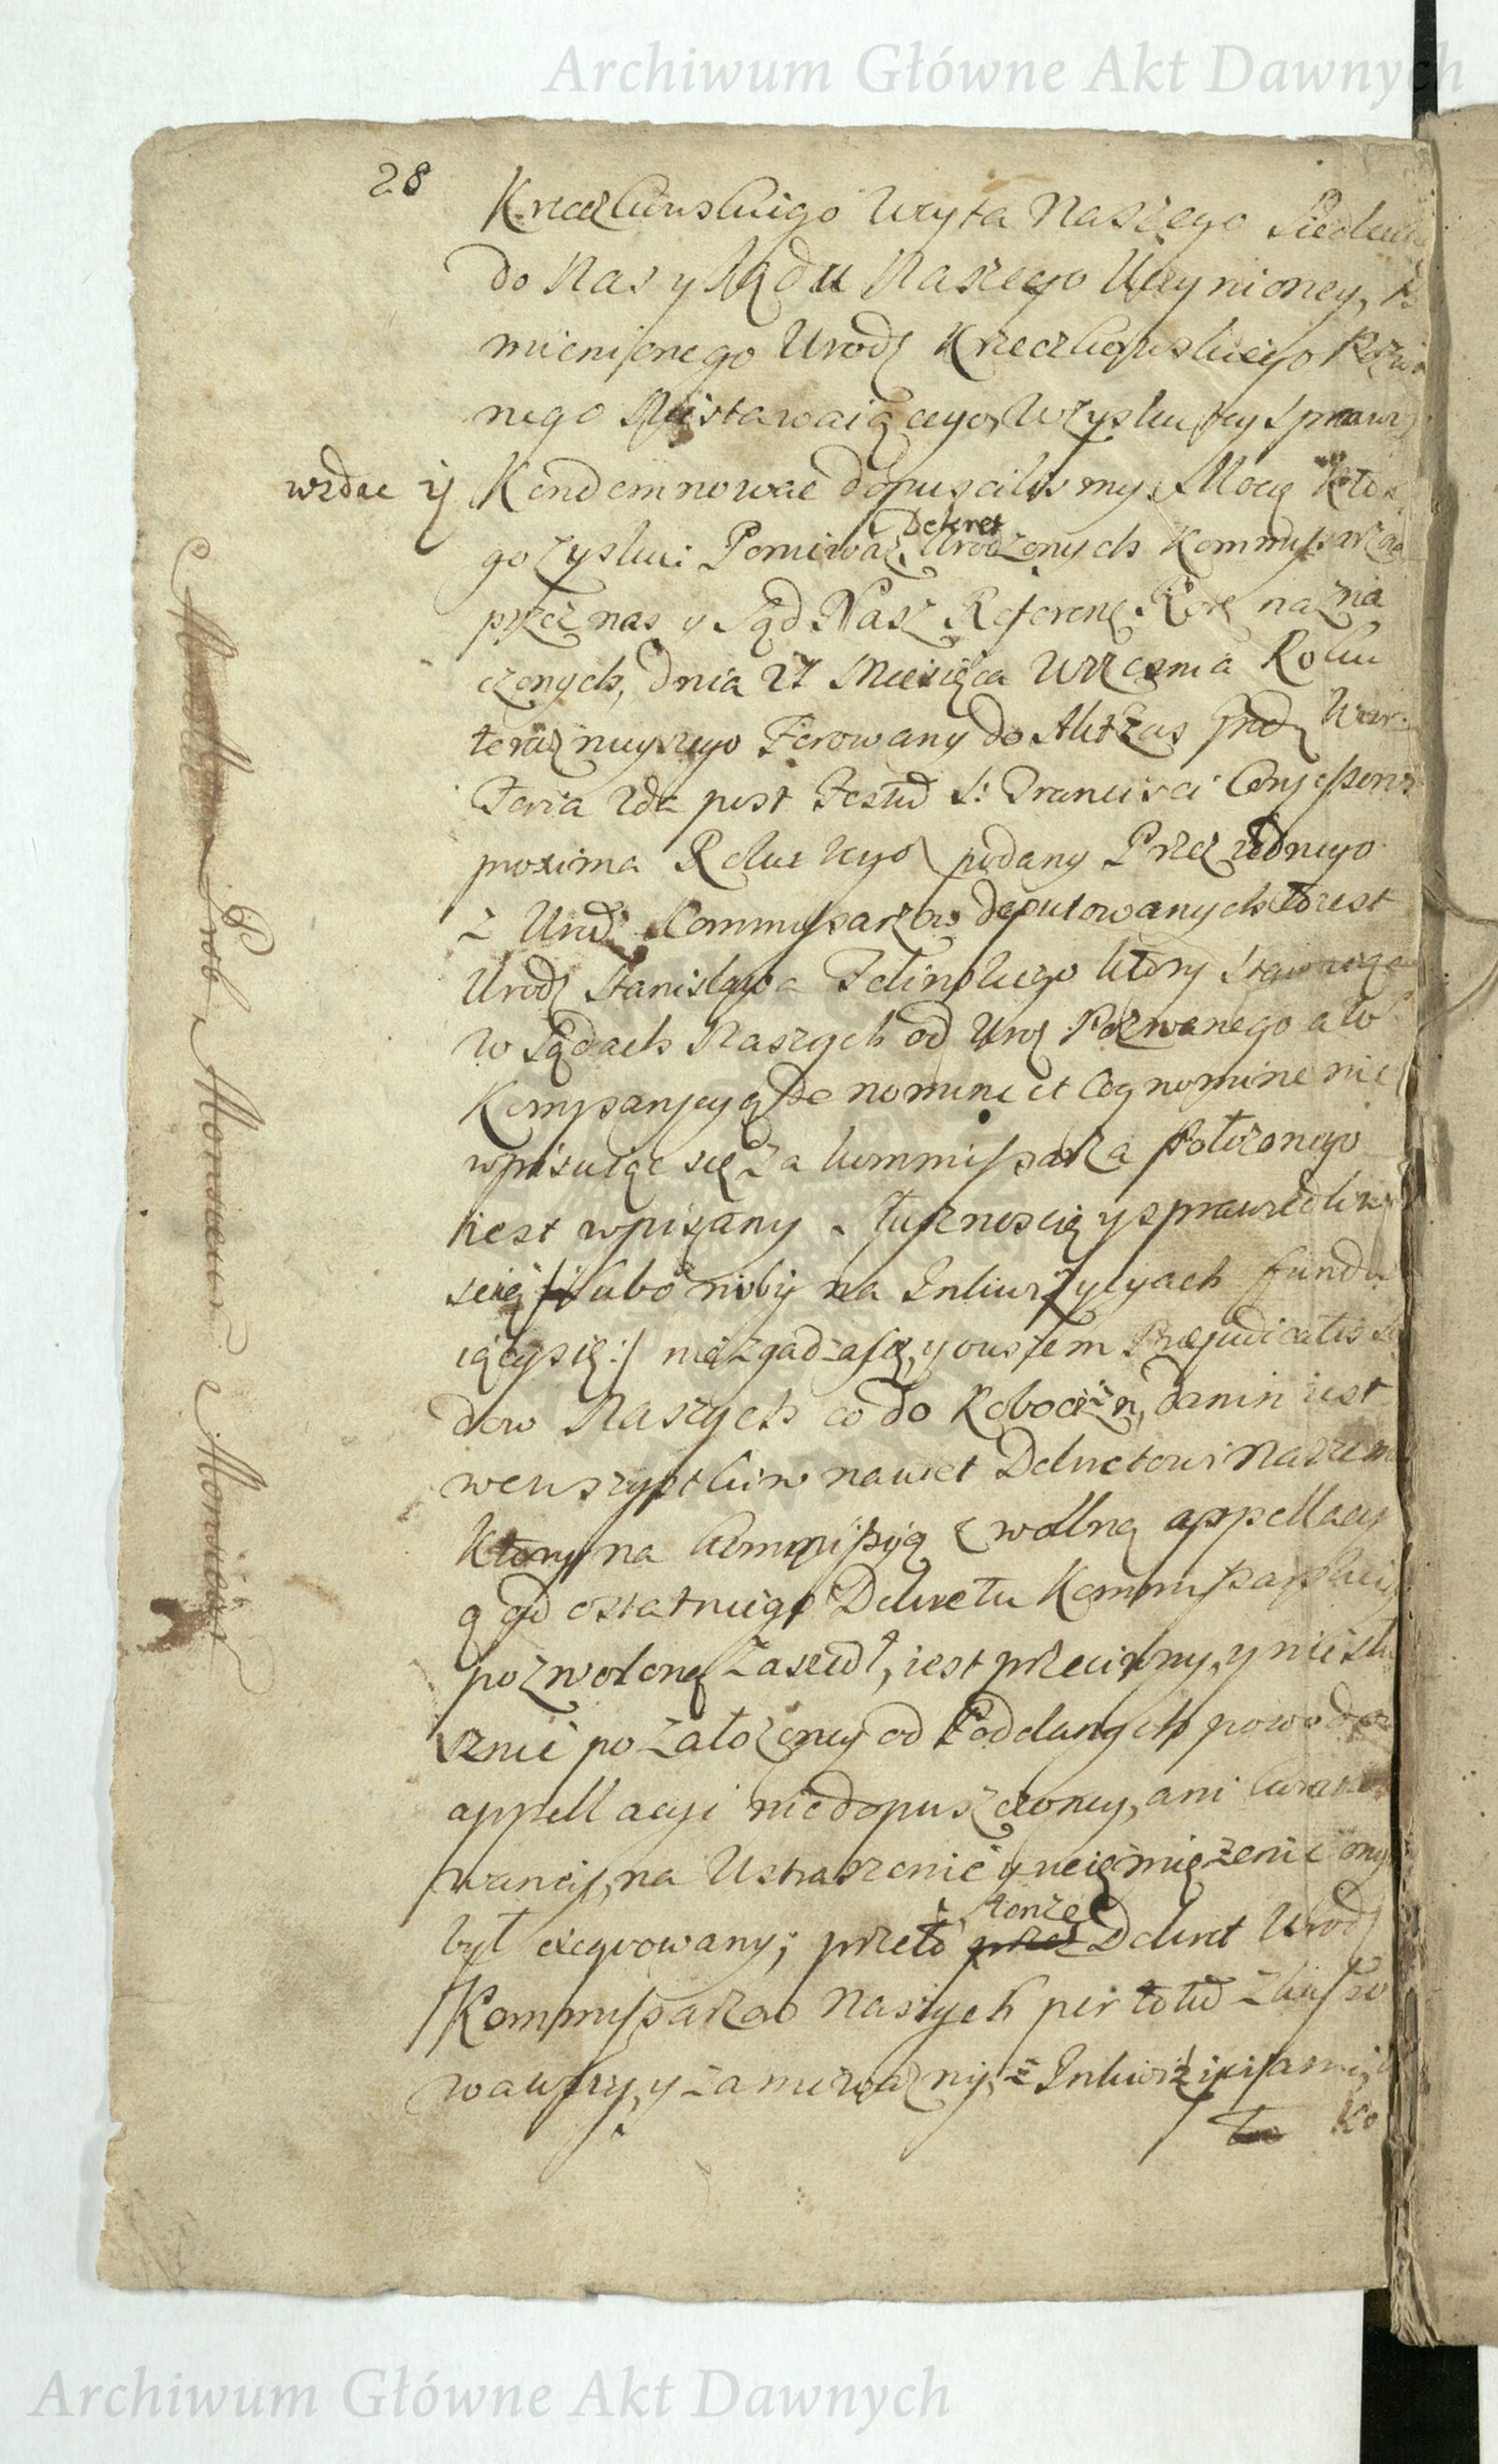 Archiwum Główne Akt Dawnych
28
Krzeczkowskiego Wóyta Naszego
do Nas y Sądu Naszego Uczynioney,
mienionego Urodz Krzeczkowskiego
nego Niestawaiącego, Wzysku tey sprawy
wzdac y Kondemnowac dopuscilismy. Mocą
Dekret
go zysku: Poniewaz Urodzonych Kommissarzow
przez nas y Sąd Nasz Referen: Kor: nazna
czonych, dnia 27 Miesiąca Wrzesnia Roku
teraznieyszego Ferowany do Akt Zas Grodz
Feria 2da post Festum S: Francisci Confessoris
proxima Roku tego podany Przez iednego
z Urodz Kommissarzow deputowanych to iest
Urodz Stanisława Felinskiego ktory stawaiąc
w Sądach Naszych od Uro: Pozwanego a w
Kompanyey de nomine et Cognomine nie
wpisuiąc się za kommissarza połozonego
iest wpisany słusznoscią y sprawiedliwo
scią /: lubo niby na Inkwizycyach fundu
iący się :/ nie zgadza się, y owszem Præjudicatis Są
dow Naszych co do Robocizn, danin iest
wewszystkim nawet Dekretowi Naszemu
ktory na kommissyą z wolną appellacy
ą od ostatniego Dekretu Kommissarskiego
pozwoloną zaszedł, iest przeciwny, y niesłu
sznie po załozoney od Poddanych powodow
appellacyi niedopuszczoney, ani
waney, na Ustraszenie y uciemięzenie
tenze
był exeqvowany; przeto przez Dekret Urodz
Kommissarzow Naszych per totum zkasso
wawszy, y zaniewazny, z Inkwizycyami,
to Ko
Monsieur Mon
Archiwum Główne Akt Dawnych